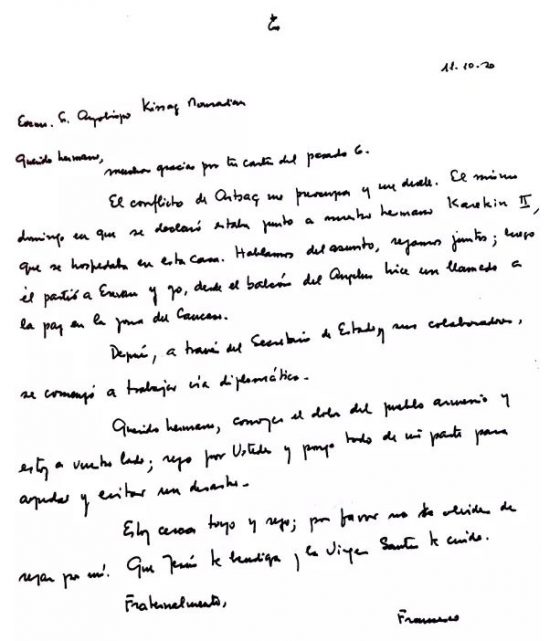 11.10.20
Excmo. S. Arzobispo Kissag Mouradian
Querido hermano,
muchas gracias por tu carta del pasado 6.
El conflicto de Artsaj me preocupa y me duele. El mismo
domingo en que se declaró estaba junto a nuestro hermano Karekin II,
que se hospedaba en esta casa. Hablamos del asunto, rezamos juntos; luego
él partió a Erevan y yo, desde el balcón del Angelus hice un llamado a
la paz en la zona del Caucaso.
Después, a través del Secretario de Estado y sus colaboradores,
se comenzó a trabajar vía diplomática.
Querido hermano, conozco el dolor del pueblo armenio y
estoy a vuestro lado; rezo por Ustedes y pongo todo de mi parte para
ayudar y evitar un desastre.
Estoy cerca tuyo y rezo; por favor no te olvides de
rezar por mí. Que Jesús te bendiga y la Virgen Santa te cuide.
Fraternalmente,
Francisco